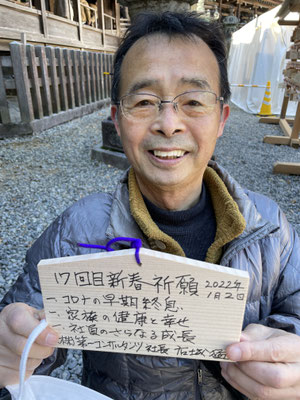 17回目新春祈願
2022年
1月2日
一.コロナの早期終息
一.家族の健康と幸せ
一.社員のさらなる成長
㈱第一コンサルタンツ 社長 右城